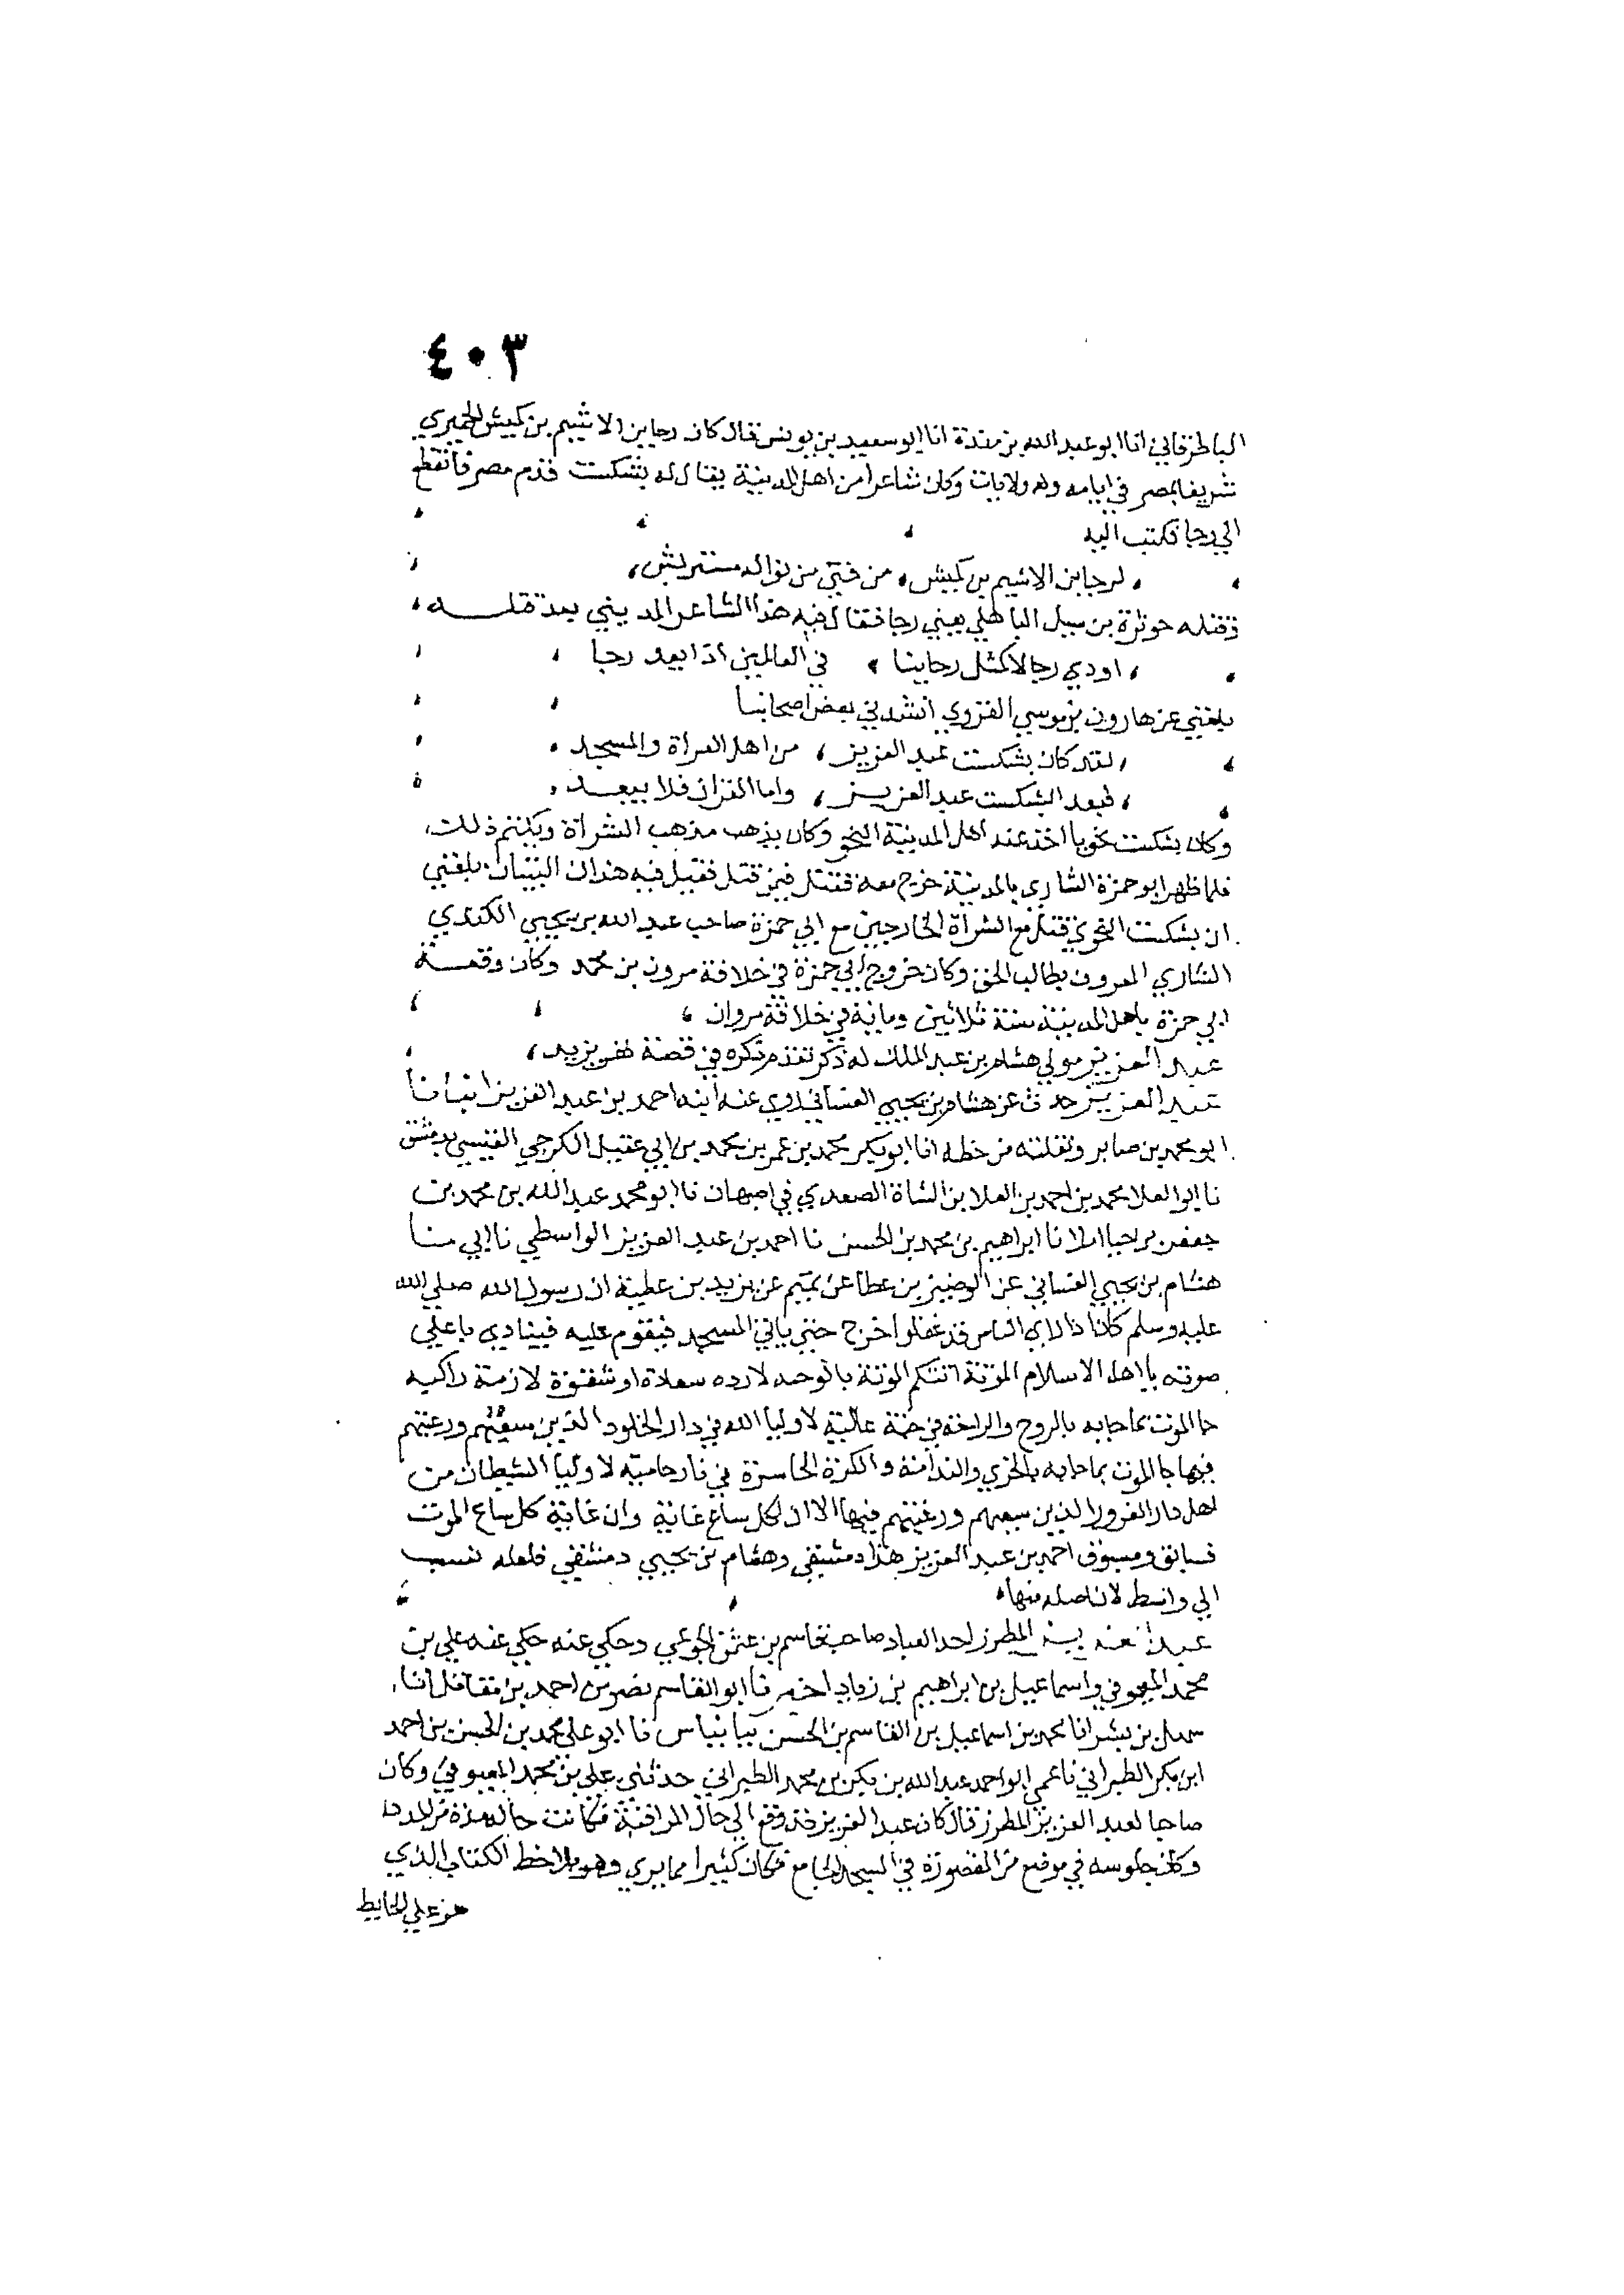 ٤٠٣
الباطرقاني انا ابو عبد الله بن مندة انا ابو سعيد بن يونس قال كان رجا بن الاشيم بن كميش الحميري
شريفا بمصر في ايامه وله ولايات وكان شاعرا من اهل المدينة يقال له بشكست قدم مصر فانقطع
الي رجا فكتب اليه
لرجا بن الاشيم بن كميش، من فتي من نواله مستريش،
فقتله حوثرة بن سهيل الباهلي يعني رجا فقال فيه هذا الشاعر المديني بعد قتله
اودي رجا لا كمثل رجاينا، في العالمين اذا يعد رجا
بلغني عن هارون بن موسي الفروي انشدني بعض اصحابنا
لقد كان بشكست عبد العزيز، من اهل القراة والمسجد
فبعد البشكست عبد العزيز، واما القران فلا يبعد
وكان بشكست نحويا اخذ عنه اهل المدينة النحو وكان يذهب مذهب الشراة ويكتم ذلك
فلما ظهر ابو حمزة الشاري بالمدينة خرج معه فقتل فيمن قتل فقيل فيه هذان البيتان بلغني
ان بشكست النحوي قتل مع الشراة الخارجين مع ابي حمزة صاحب عبد الله بن يحيي الكندي
الشاري المعروف بطالب الحق وكان خروج ابي حمزة في خلافة مرون بن محمد وكان وقعة
ابي حمزة باهل المدينة سنة ثلاثين وماية في خلافة مروان
عبد العزيز مولي هشام بن عبد الملك له ذكر تقدم ذكره في قصة لهو يزيد،
عبد العزيز حدث عن هشام بن يحيي الغساني روي عنه ابنه احمد بن عبد العزيز انبانا
ابو محمد بن صابر ونقلته من خطه انا ابو بكر محمد بن عمر بن محمد بن ابي عقيل الكرجي القيسي بدمشق
نا ابو العلا محمد بن احمد بن العلا بن الشاة الصعدي في اصبهان نا ابو محمد عبد الله بن محمد بن
جعفر بن حيا املا نا ابراهيم بن محمد بن الحسن نا احمد بن عبد العزيز الواسطي نا ابي نا
هشام بن يحيي الغساني عن الوضين بن عطا عن تميم عن يزيد بن عطية ان رسول الله صلي الله
عليه وسلم كان اذا راي الناس قد غفلوا خرج حتي ياتي المسجد فيقوم عليه فينادي باعلي
صوته يا اهل الاسلام الموتة اتتكم الوتة بالوحه لا رده سعادة او شقوة لازمة راكبه
جا الموت بما جا به بالروح والراحة في جنة عالية لاوليا الله في دار الخلود الذين سعيهم ورغبتهم
فيها جا الموت بما جا به بالخزي والندامة والكرة الخاسرة في نار حامية لاوليا الشيطان من
اهل دار الغرور الذين سعيهم ورغبتهم فيها الا ان لكل ساع غاية وان غاية كل ساع الموت
فسابق ومسبوق احمد بن عبد العزيز هذا دمشقي وهشام بن يحيي دمشقي فلعله نسب
الي واسط لان اصله منها
عبد العزيز المطرز احد العباد صاحب قاسم بن عثمن الجوعي وحكي عنه حكي عنه علي بن
محمد المعيوفي واسماعيل بن ابراهيم بن زياد نا ابو القاسم نصر بن احمد بن مقاتل انا
سهل بن بشر انا محمد بن اسماعيل بن القاسم بن الحسن ببانياس نا ابو علي محمد بن الحسن بن احمد
ابن بكر الطبراني نا عمي ابو احمد عبد الله بن بكر بن محمد الطبراني حدثني علي بن محمد المعيوفي وكان
صاحبا لعبد العزيز المطرز قال كان عبد العزيز قد وقع الي حال المراقبة فكانت حاله
وكان جلوسه في موضع من المقصورة في المسجد الجامع فكان كثيرا مما يري وهو يلاحظ الكتاب الذي
هو علي الحايط